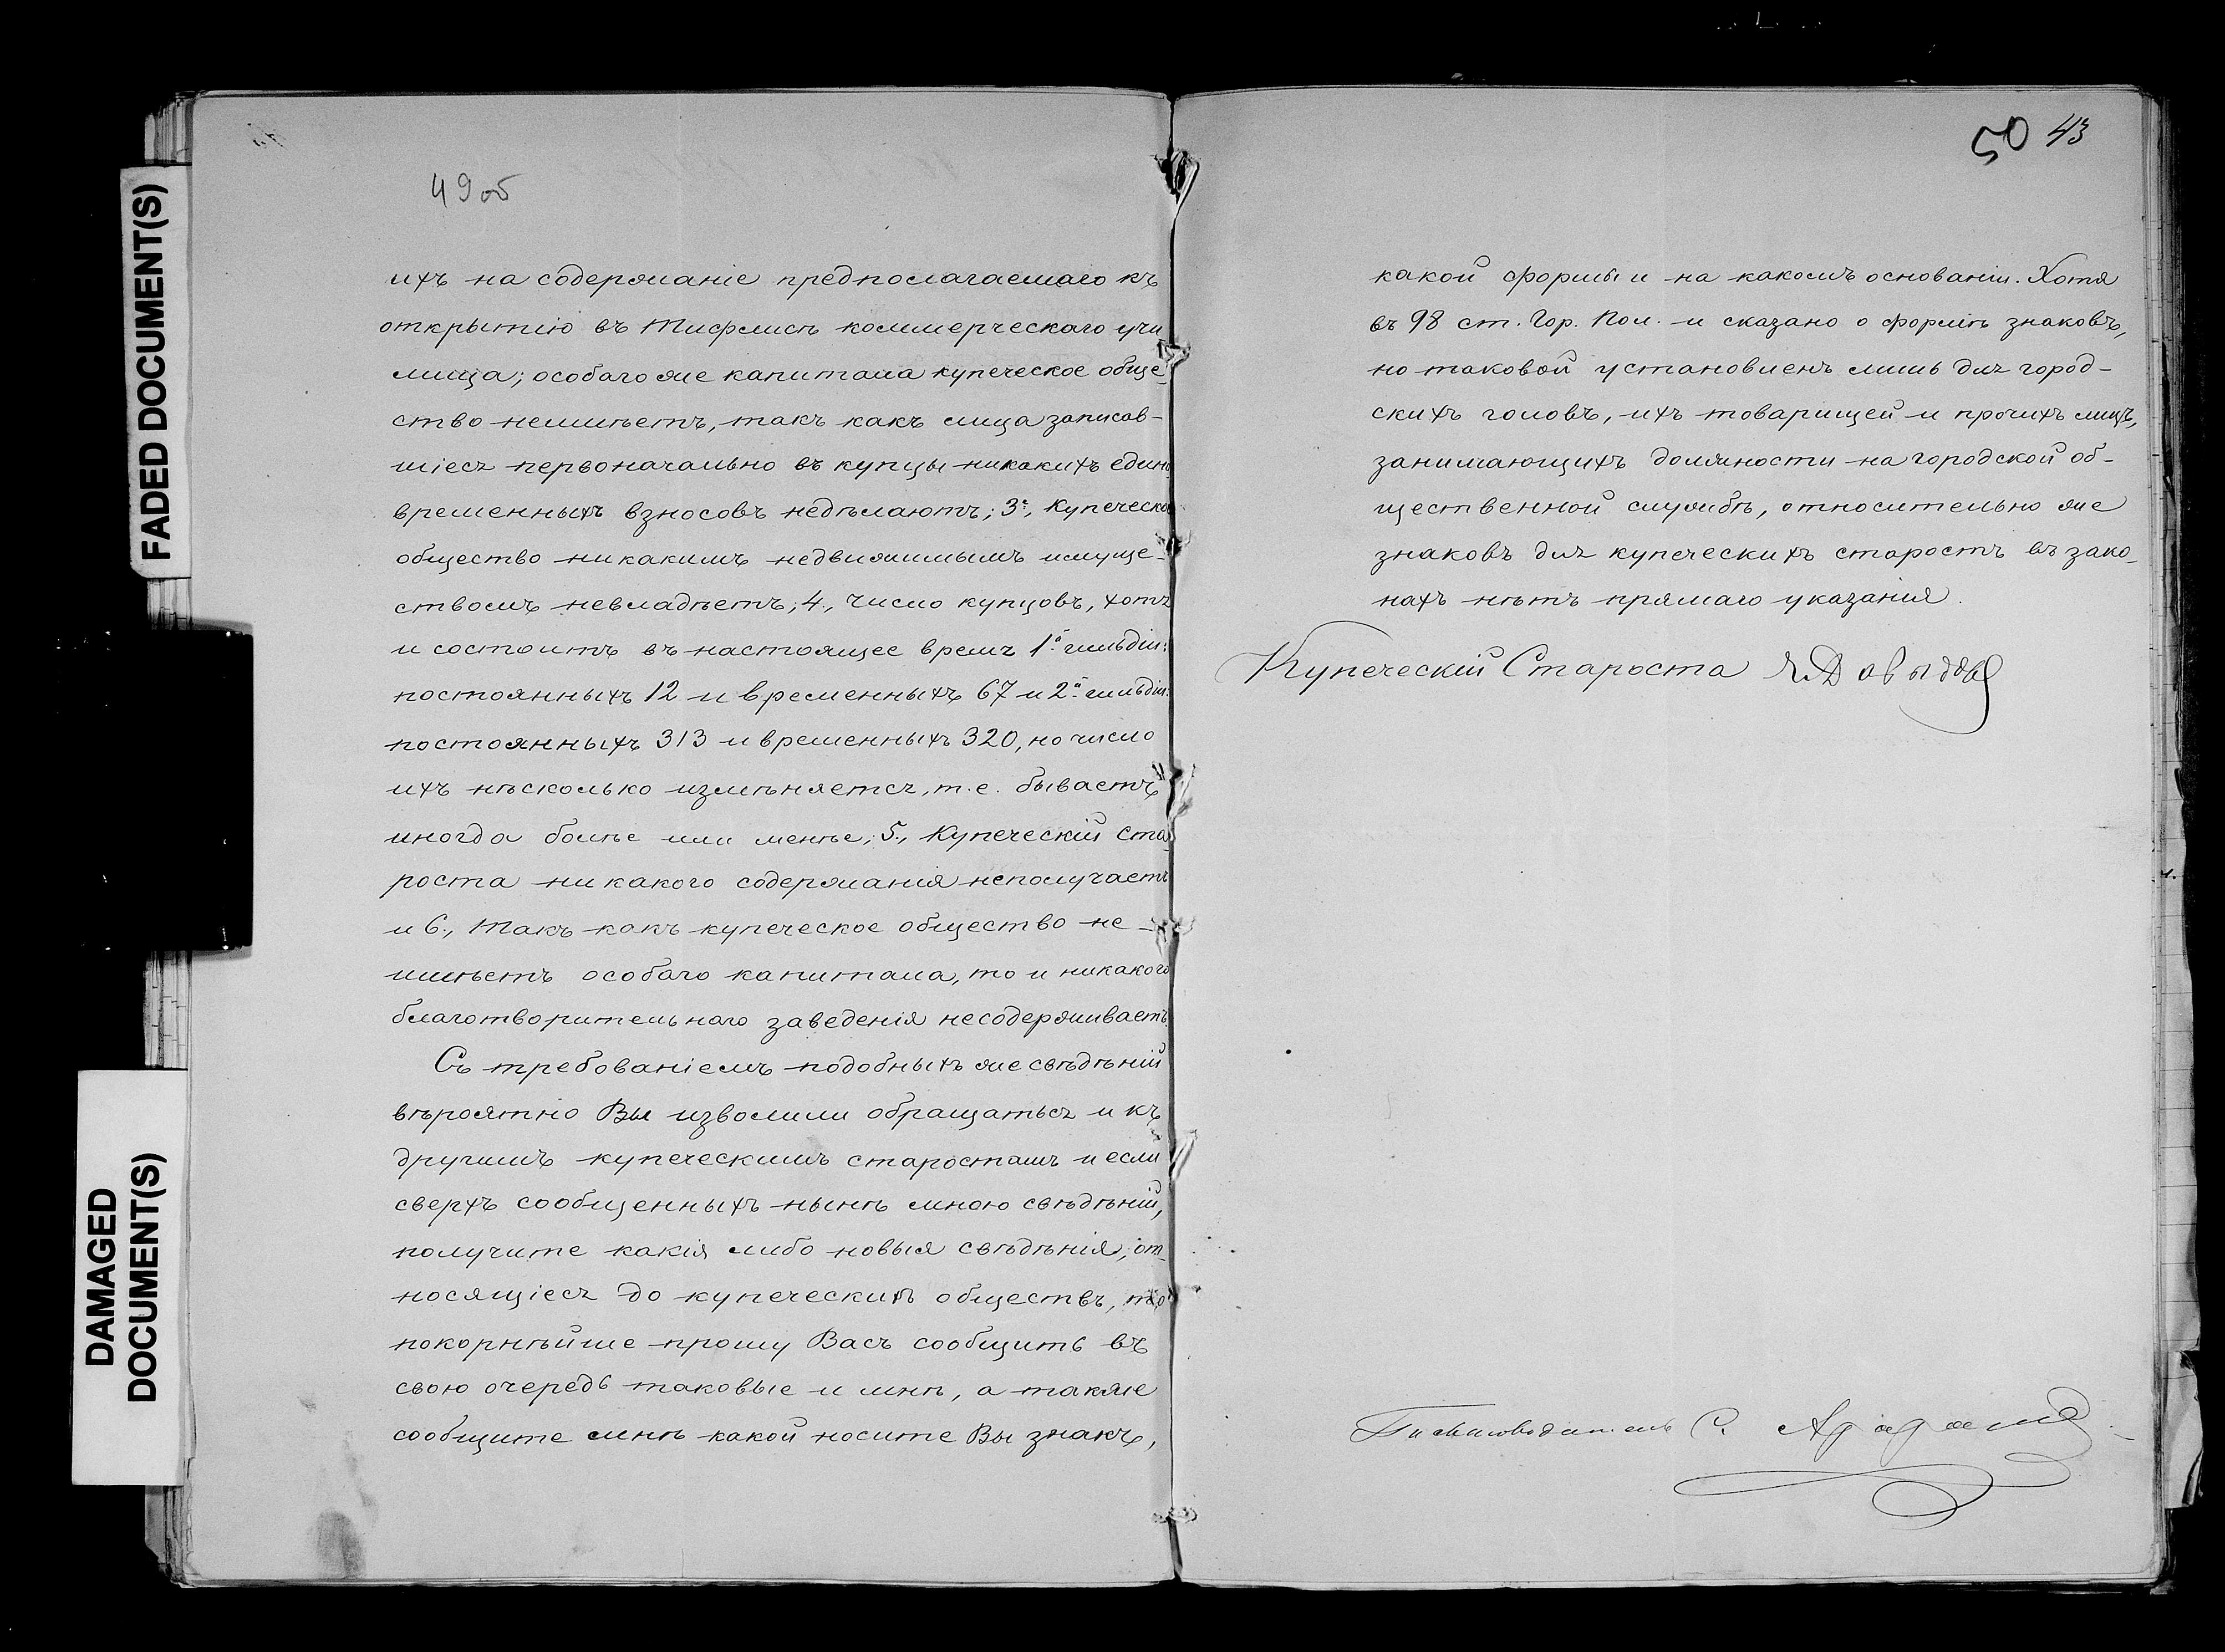 FADED DOCUMENT(S)
DAMAGED
DOCUMENT(S)
49об
ихъ на содержаніе предполагаемаго къ
открытію въ Тифлисѣ коммерческаго учи
лища; особаго же капитала купеческое обще-
ство неимѣетъ, такъ какъ лица записав-
шіеся первоначально въ купцы никакихъ едино
временныхъ взносовъ недѣлаютъ; 3., Купеческое
общество никакимъ недвижимымъ имуще-
ствомъ невладѣетъ; 4., число купцовъ, хотя
и состоитъ въ настоящее время 1й гильдіи:
постоянныхъ 12 и временныхъ 67 и 2й гильдіи:
постоянныхъ 313 и временныхъ 320, но число
ихъ нѣсколько измѣняется, т.е. бываетъ
иногда болѣе или менѣе; 5., Купеческій ста-
роста никакого содержанія неполучаетъ
и 6., Такъ какъ купеческое общество не-
имѣетъ особаго капитала, то и никакого
благотворительнаго заведенія несодерживаетъ.
Съ требованіемъ подобныхъ же свѣдѣній
вѣроятно Вы изволили обращаться и къ
другимъ купеческимъ старостамъ и если
сверхъ сообщенныхъ нынѣ мною свѣдѣній,
получите какія либо новыя свѣдѣнія, от-
носящіеся до купеческихъ обществъ, то
покорнѣйше прошу Васъ сообщить въ
свою очередь таковые и мнѣ, а также
сообщите мнѣ какой носите Вы знакъ,
50 43
какой формы и на какомъ основаніи. Хотя
въ 98 ст. Гор. Пол. и сказано о формѣ знаковъ,
но таковой установленъ лишь для город-
скихъ головъ, ихъ товарищей и прочихъ лицъ,
занимающихъ должности на городской об-
щественной службѣ, относительно же
знаковъ для купеческихъ старостъ въ зако-
нахъ нѣтъ прямаго указанія.
Купеческій Староста Я. Давыдовъ
Письмоводитель С.